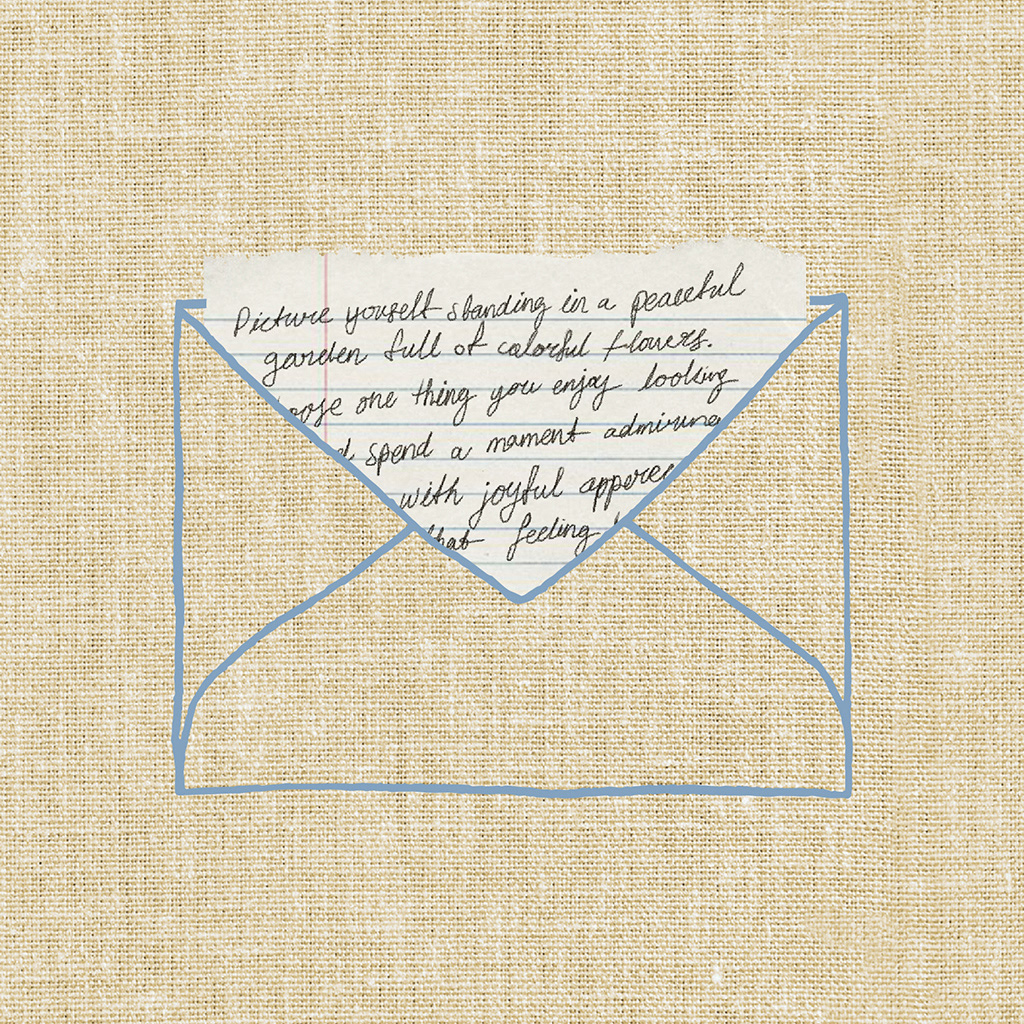 Picture yourself standing in a peaceful
garden full of colorful flowers.
one thing you enjoy looking
spend a mament admiring
with joyful
that feeling